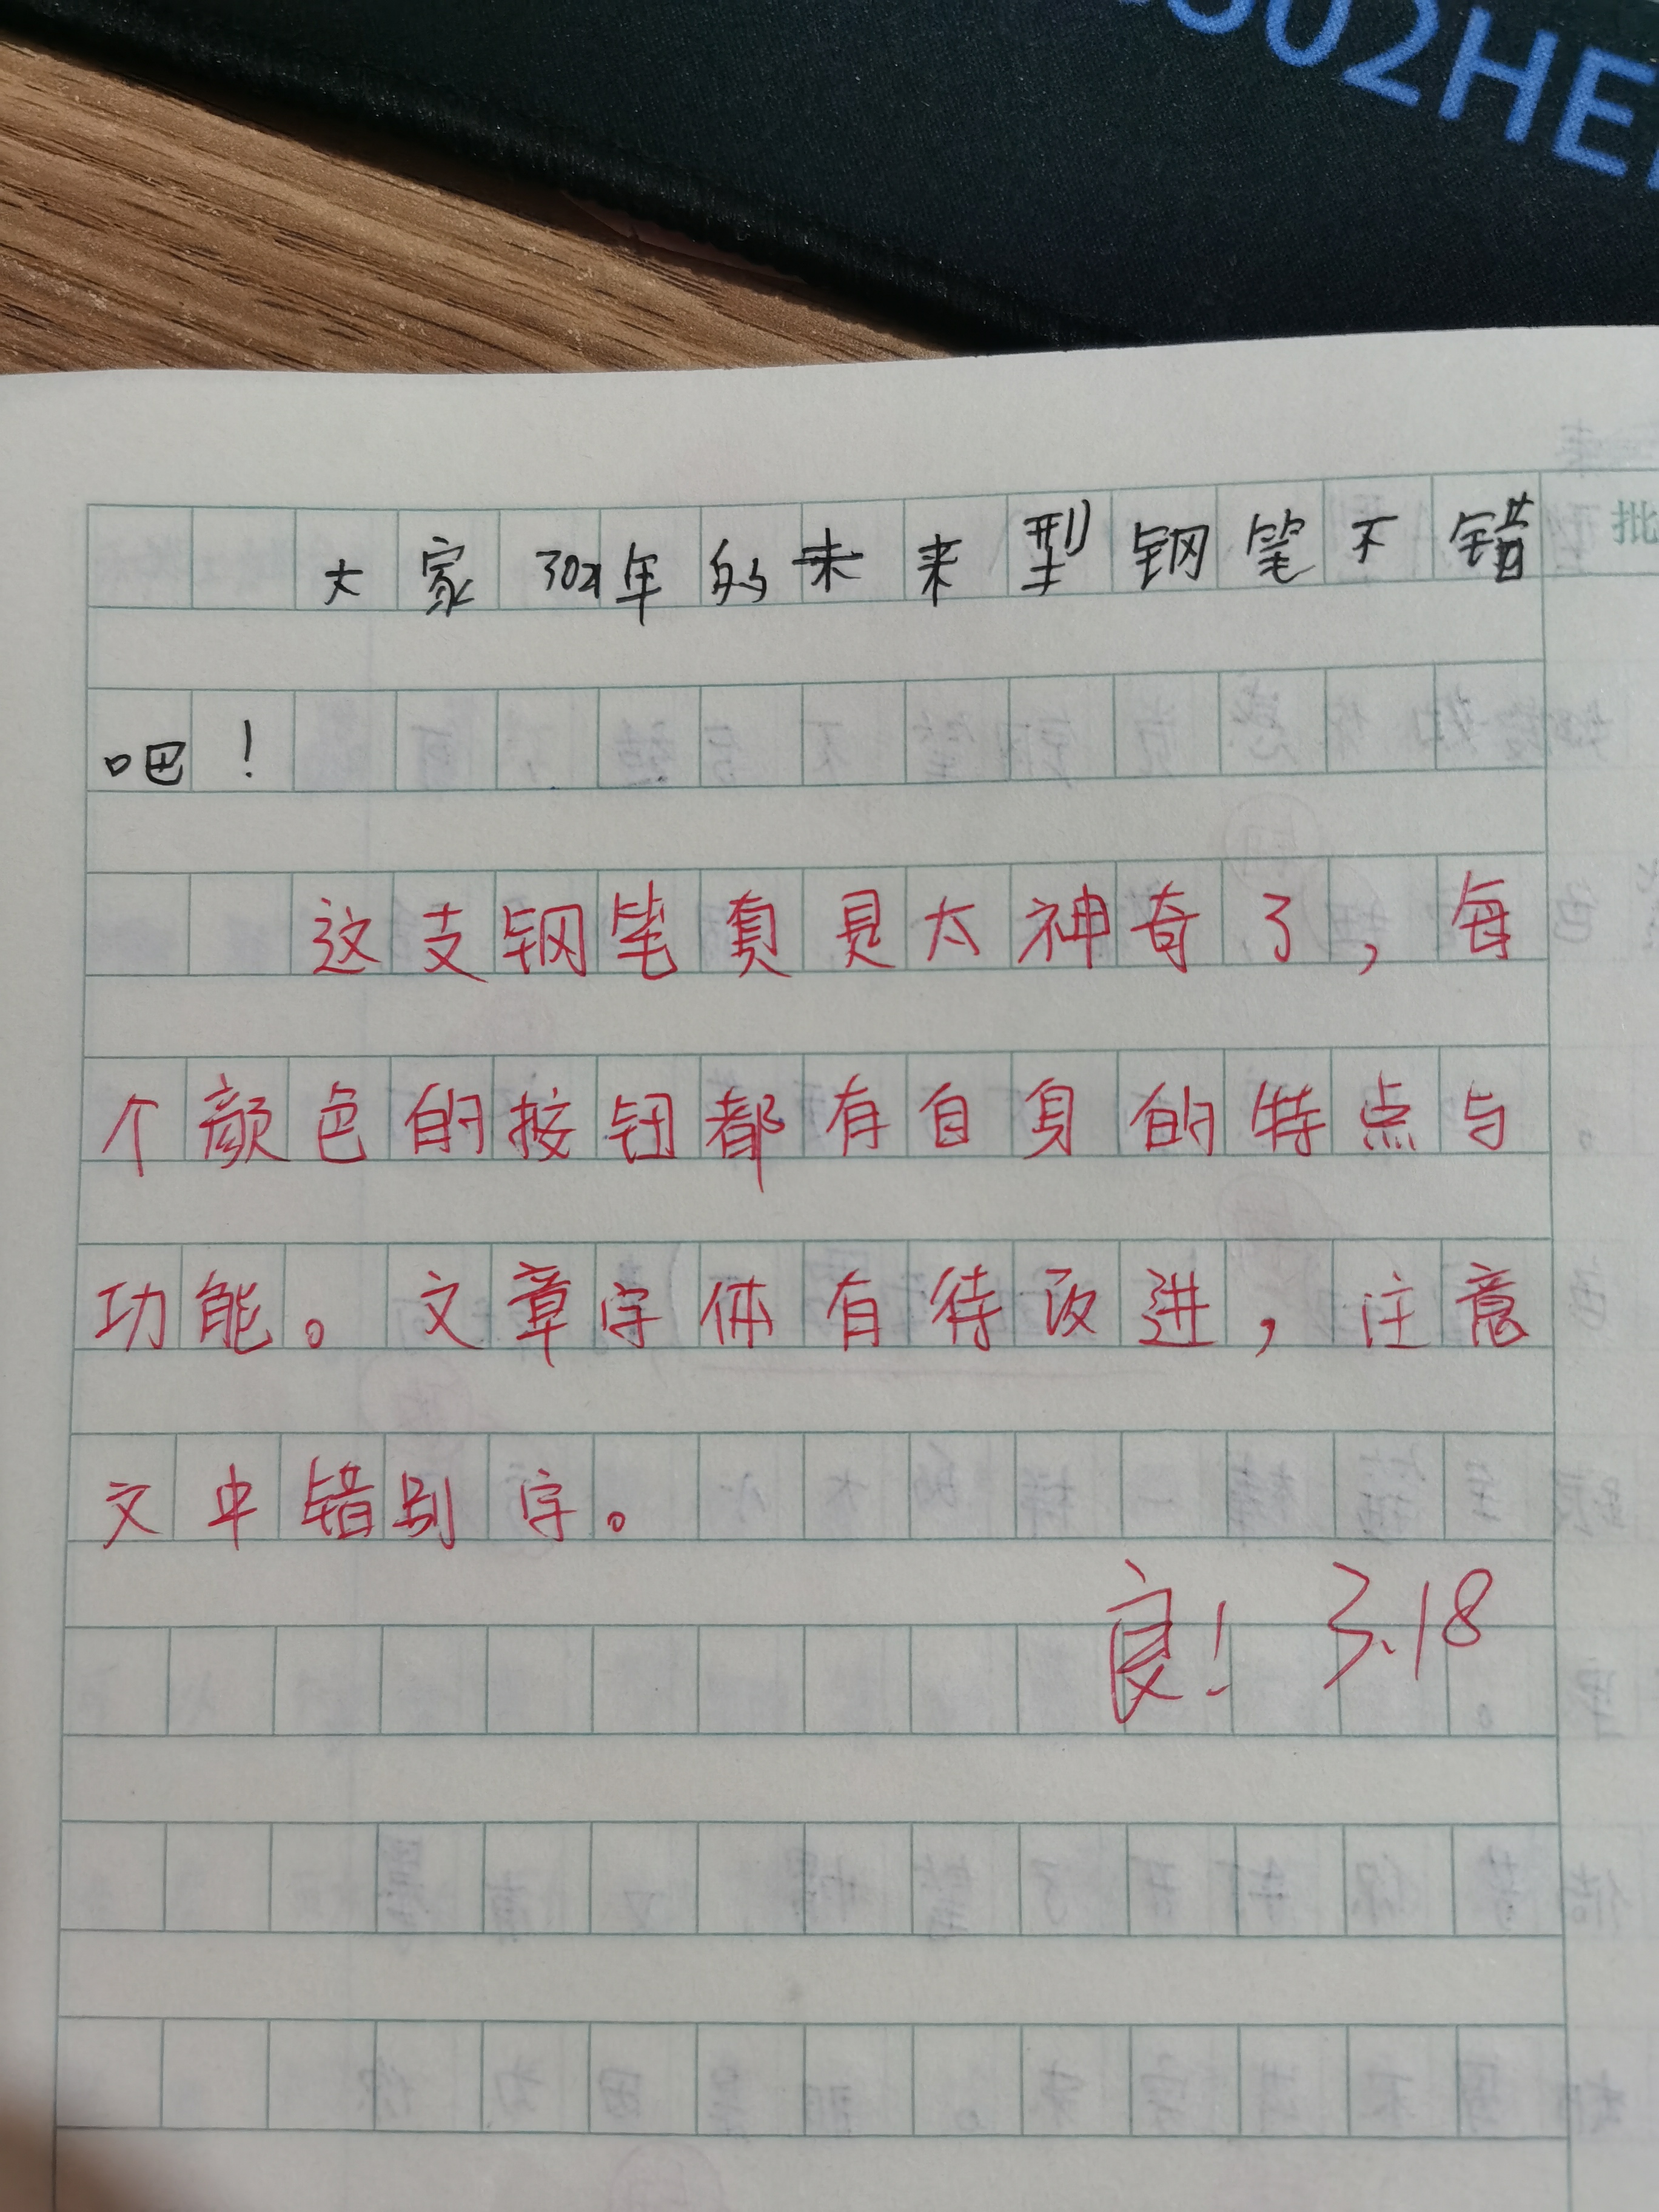 502HE
批
大家3021年的未来型钢笔不错
吧！
这支钢笔真是太神奇了，每
个颜色的按钮都有自身的特点与
功能。文章字体有待改进，注意
文中错别字。
良！ 3.18